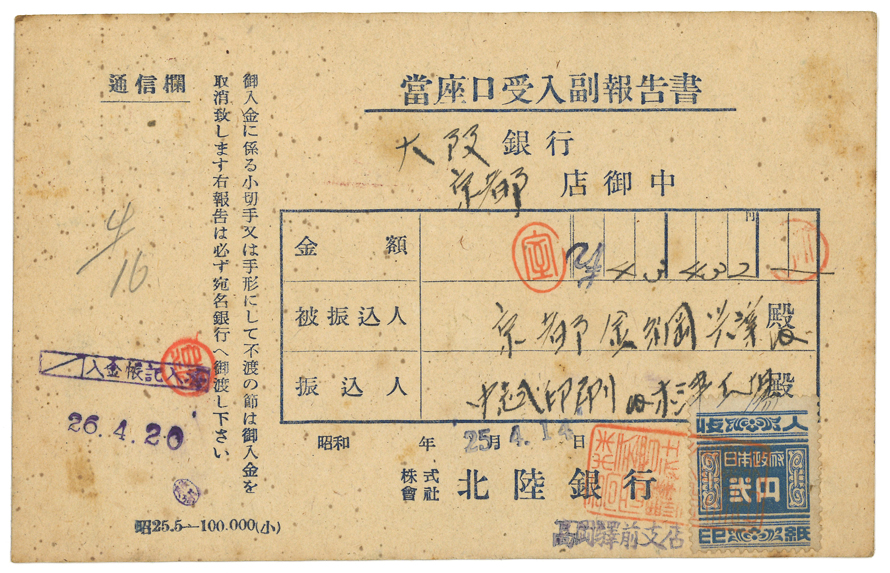 當座口受入副報告書
大阪銀行
京都店御中
金額
円
43432
被振込人 京都 殿
振込人 印刷 殿
昭和 年 月 日
25 4.14
株式會社 北陸銀行
高岡驛前支店
収入
日本政府
弐円
印紙
通信欄
御入金に係る小切手又は手形にして不渡の節は御入金を
取消致します右報告は必ず宛名銀行へ御渡し下さい
4/16
入金帳記入
26.4.20
昭25.5—100.000(小)